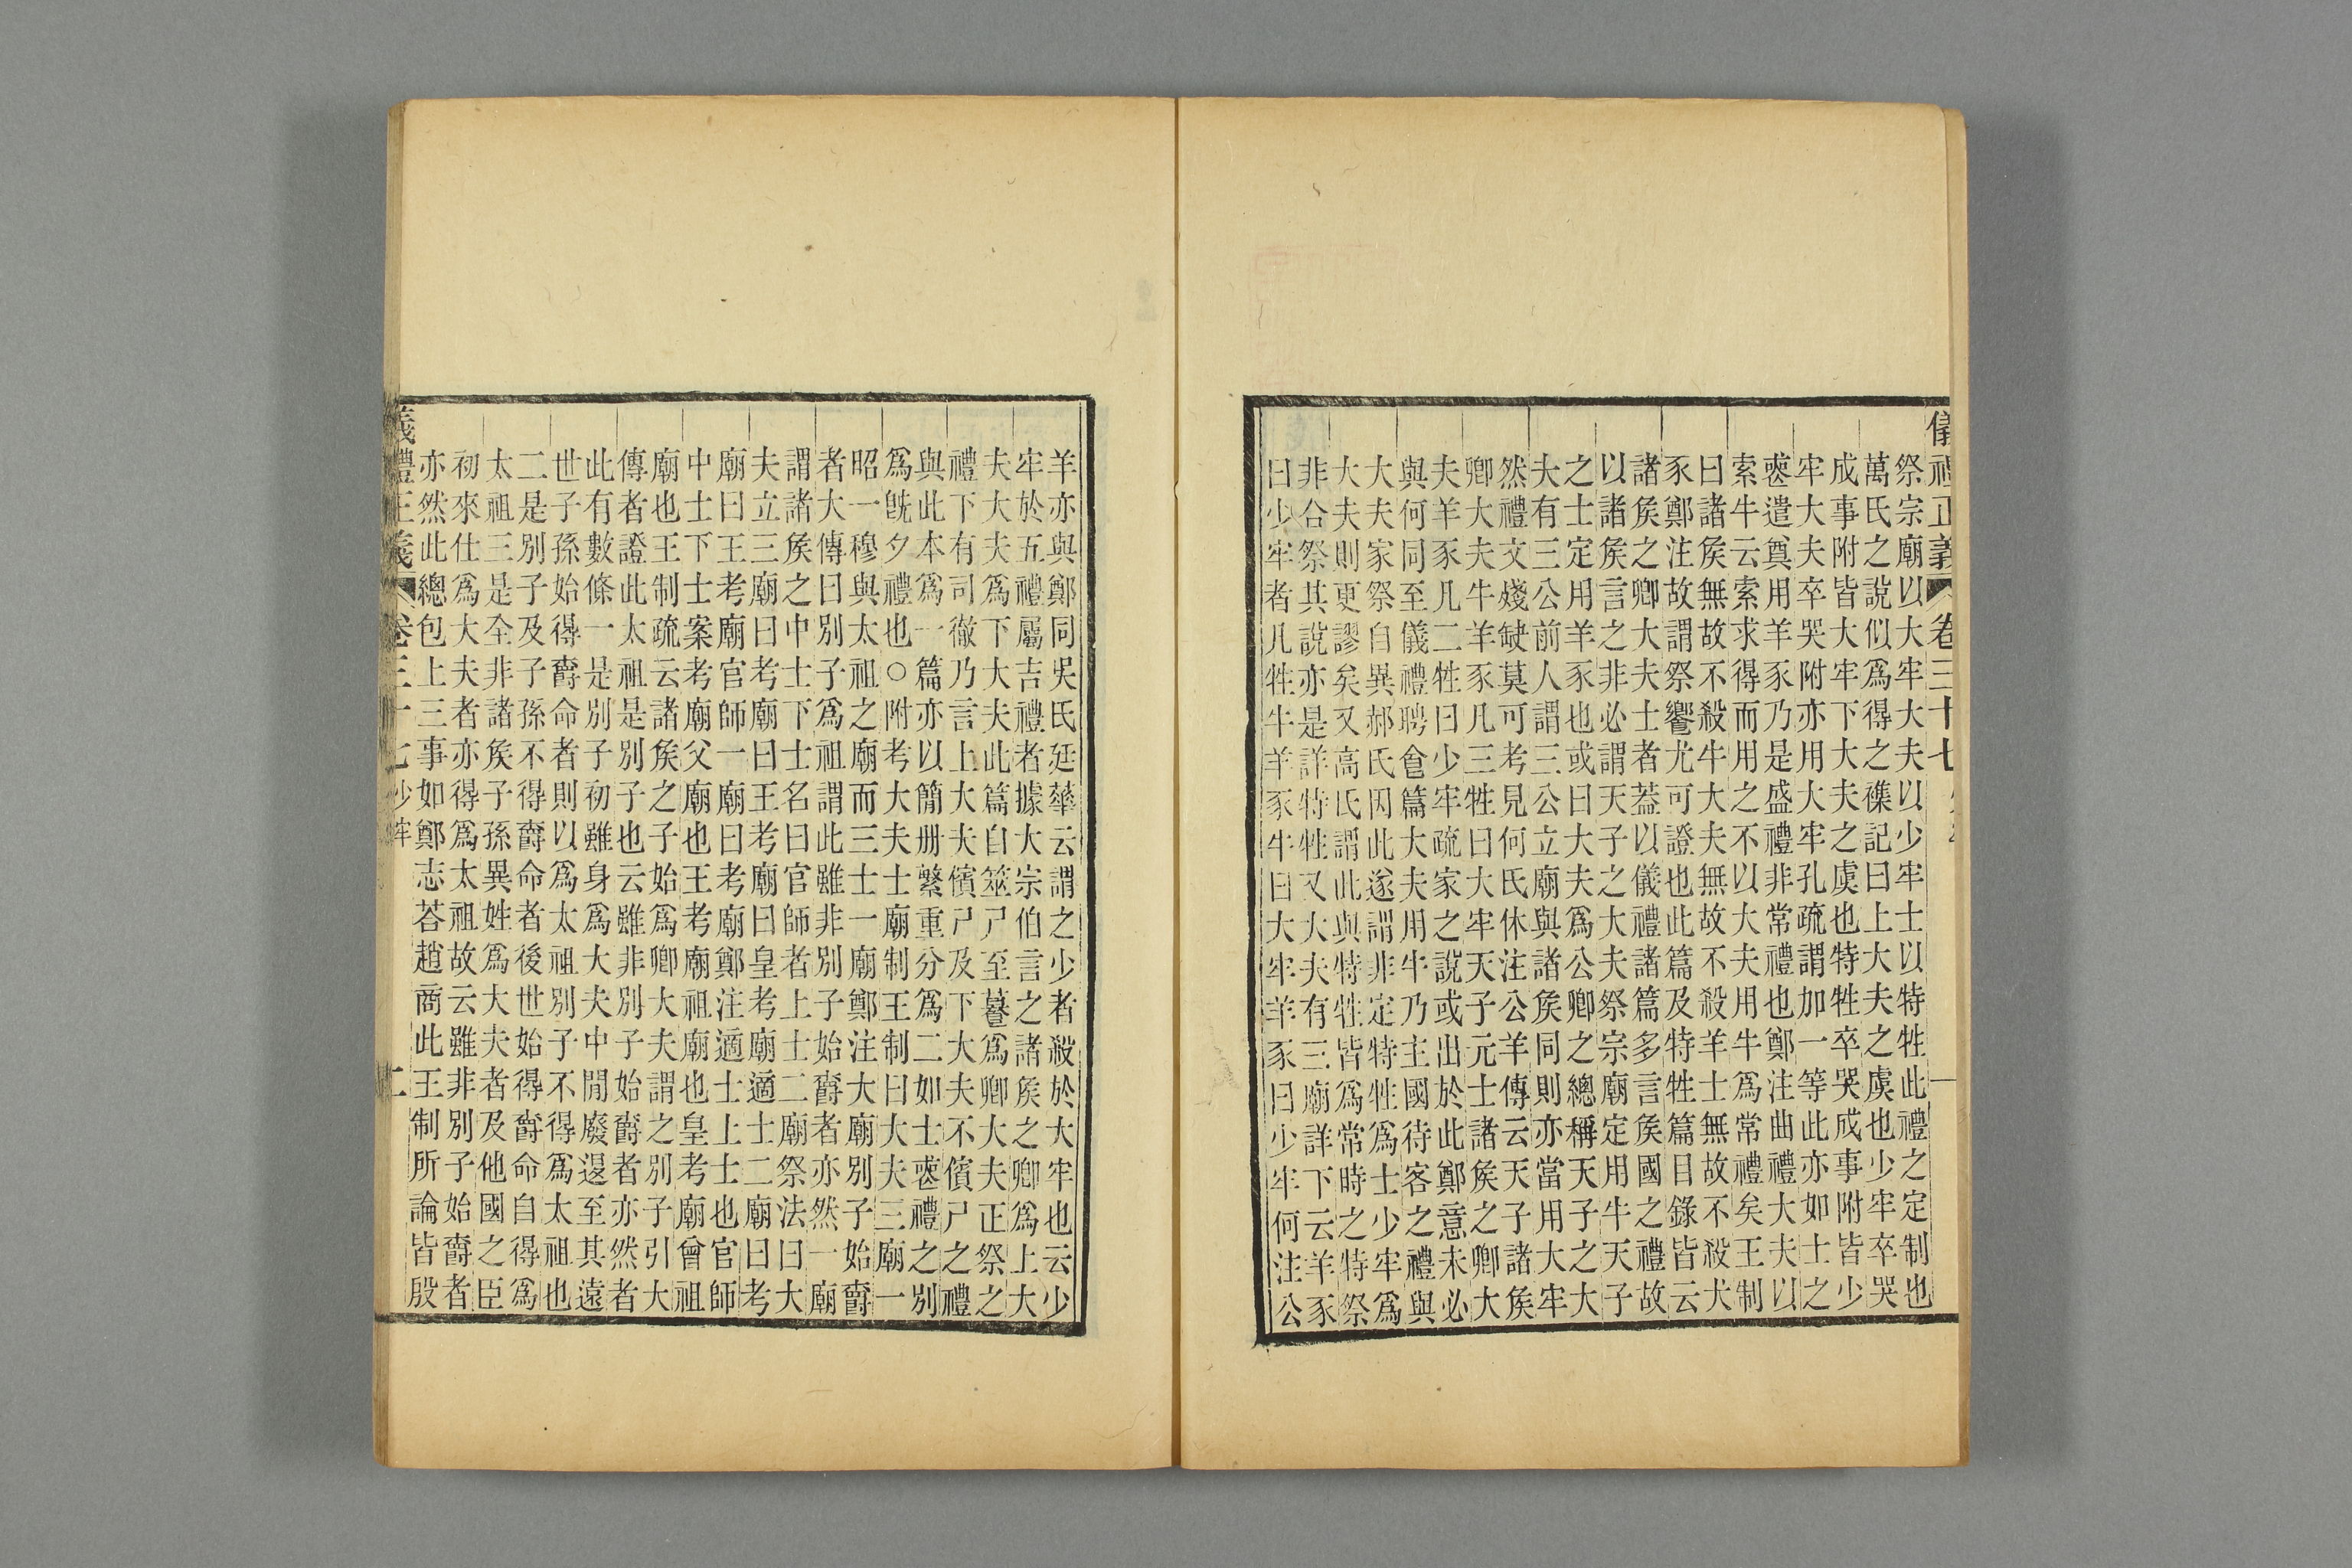 儀禮正義 卷三十七 一
祭宗廟以大牢大夫以少牢士以特牲此禮之定制也
萬氏之說似爲得之襍記曰上大夫之虞也少牢卒哭
成事附皆大牢下大夫之虞也特牲卒哭成事附皆少
牢大夫卒哭附亦用大牢孔疏謂加一等此亦如士之
喪遣奠用羊豕乃是盛禮非常禮也鄭注曲禮大夫以
索牛云索求得而用之不以大夫用牛爲常禮矣王制
曰諸矦無故不殺牛大夫無故不殺羊士無故不殺犬
豕鄭注故謂祭饗尤可證也此篇及特牲篇目錄皆云
諸矦之卿大夫士者蓋以儀禮諸篇多言矦國之禮故
以諸矦言之非必謂天子之大夫祭宗廟定用牛天子
之士定用羊豕也或曰大夫爲公卿之總稱天子之大
夫有三公前人謂三公立廟與諸矦同則亦當用大牢
然禮文殘缺莫可考見何氏休注公羊傳云天子諸矦
卿大夫牛羊豕凡三牲曰大牢天子元士諸矦之卿大
夫羊豕凡二牲曰少牢疏家之說或出於此鄭意未必
與何同至儀禮聘食篇大夫用牛乃主國待客之禮與
大夫家祭自異郝氏因此遂謂非定特牲爲士少牢爲
大夫則更謬矣又高氏謂此與特牲皆爲常時之特祭
非合祭其說亦是詳特牲又大夫有三廟詳下云羊豕
曰少牢者凡牲牛羊豕牛曰大牢羊豕曰少牢何注公
羊亦與鄭同吳氏廷華云謂之少者殺於大牢也云少
牢於五禮屬吉禮者據大宗伯言之諸矦之卿爲上大
夫大夫爲下大夫此篇自筮尸至暮爲卿大夫正祭之
禮下有司徹乃言上大夫儐尸及下大夫不儐尸之禮
與此本爲一篇亦以簡册繁重分爲二如士喪禮之別
爲旣夕禮也○附考大夫士廟制王制曰大夫三廟一
昭一穆與太祖之廟而三士一廟鄭注大廟別子始爵
者大傳曰別子爲祖謂此雖非別子始爵者亦然一廟
謂諸矦之中士下士名曰官師者上士二廟祭法曰大
夫立三廟曰考廟曰王考廟曰皇考廟適士二廟曰考
廟曰王考廟官師一廟曰考廟鄭注適士上士也官師
中士下士案考廟父廟也王考廟祖廟也皇考廟曾祖
廟也王制疏云諸矦之子始爲卿大夫謂之別子引大
傳者證此太祖是別子也云雖非別子始爵者亦然者
此有數條一是別子初雖身爲大夫中閒廢退至其遠
世子孫始得爵命者則以爲太祖別子不得爲太祖也
二是別子及子孫不得爵命者後世始得爵命自得爲
太祖三是全非諸矦子孫異姓爲大夫者及他國之臣
初來仕爲大夫者亦得爲太祖故云雖非別子始爵者
亦然此總包上三事如鄭志荅趙商此王制所論皆殷
儀禮正義 卷三十七 少牢 二